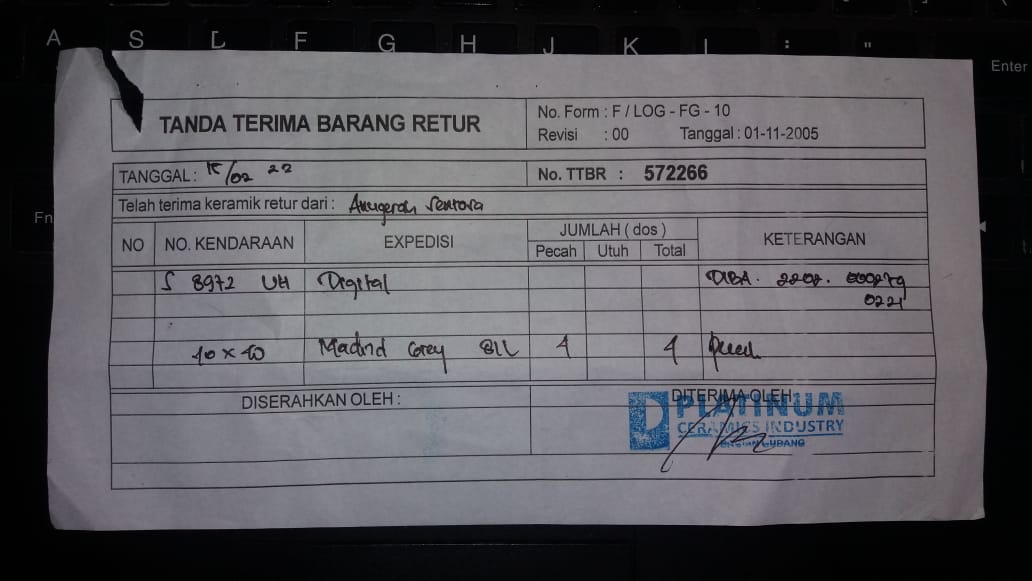 A S D F G H J K L : "
Enter
Fn
TANDA TERIMA BARANG RETUR
No. Form : F / LOG - FG - 10
Revisi : 00 Tanggal : 01-11-2005
TANGGAL : 15/02 22
No. TTBR : 572266
Telah terima keramik retur dari : Anugerah Sentosa
NO NO. KENDARAAN EXPEDISI JUMLAH ( dos ) KETERANGAN
Pecah Utuh Total
S 8972 UH Digital DIBA. 2202.
0221
40 x 40 Madrid Grey 4 4
DISERAHKAN OLEH :
DITERIMA OLEH :
PLATINUM
CERAMICS INDUSTRY